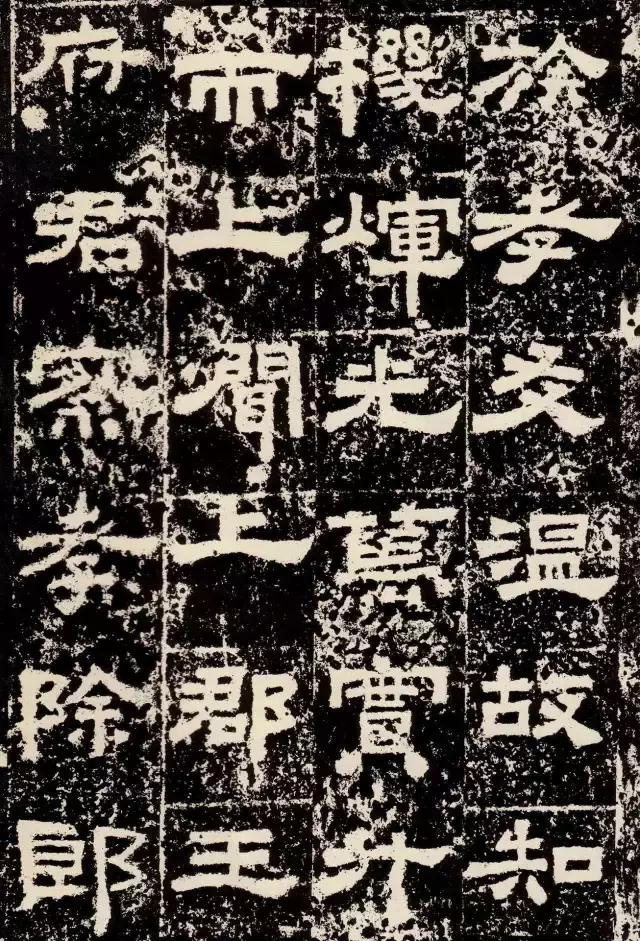 於孝友温故知
機煇光篤實升
而上聞上郡王
府君察孝除郎